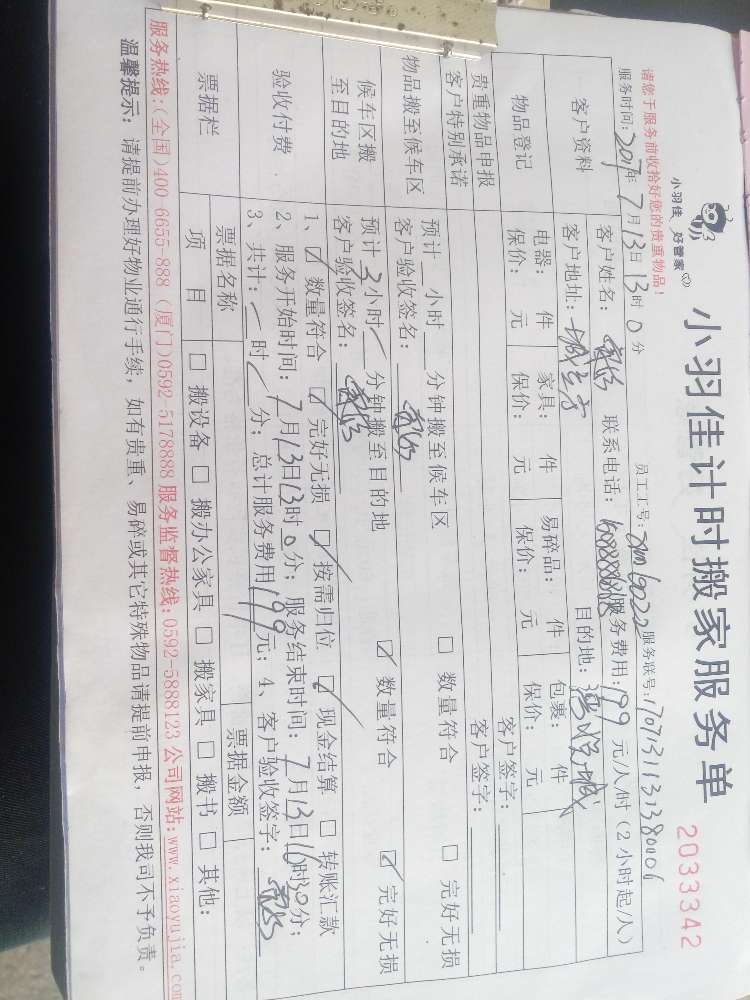 小羽佳 好管家
小羽佳计时搬家服务单
2033342
请您于服务前收拾好您的贵重物品！
服务时间：2017年7月13日13时0分 员工工号： 服务联号：
客户资料
客户姓名： 联系电话： 服务费用：199元/人/时（2小时起/人）
客户地址： 目的地：
物品登记
电器： 件 家具： 件 易碎品： 件 包裹： 件
保价： 元 保价： 元 保价： 元 保价： 元
贵重物品申报 客户签字：
客户特别承诺 客户签字：
物品搬至候车区
预计 小时 分钟搬至候车区 □ 数量符合 □ 完好无损
客户验收签名：
候车区搬至目的地
预计 3小时 分钟搬至目的地 ☑ 数量符合 ☑ 完好无损
客户验收签名：
验收付费
1、☑ 数量符合 ☑ 完好无损 ☑ 按需归位 ☑ 现金结算 □ 转账汇款
2、服务开始时间：7月13日13时0分；服务结束时间：7月13日16时30分；
3、共计： 时 分；总计服务费用199元；4、客户验收签字：
票据栏
票据名称 票据金额
项目 □ 搬设备 □ 搬办公家具 □ 搬家具 □ 搬书 □ 其他：
服务热线：（全国）400-6655-888（厦门）0592-5178888 服务监督热线：0592-5888123 公司网站：www.xiaoyujia.com
温馨提示：请提前办理好物业通行手续，如有贵重、易碎或其它特殊物品请提前申报，否则我司不予负责。